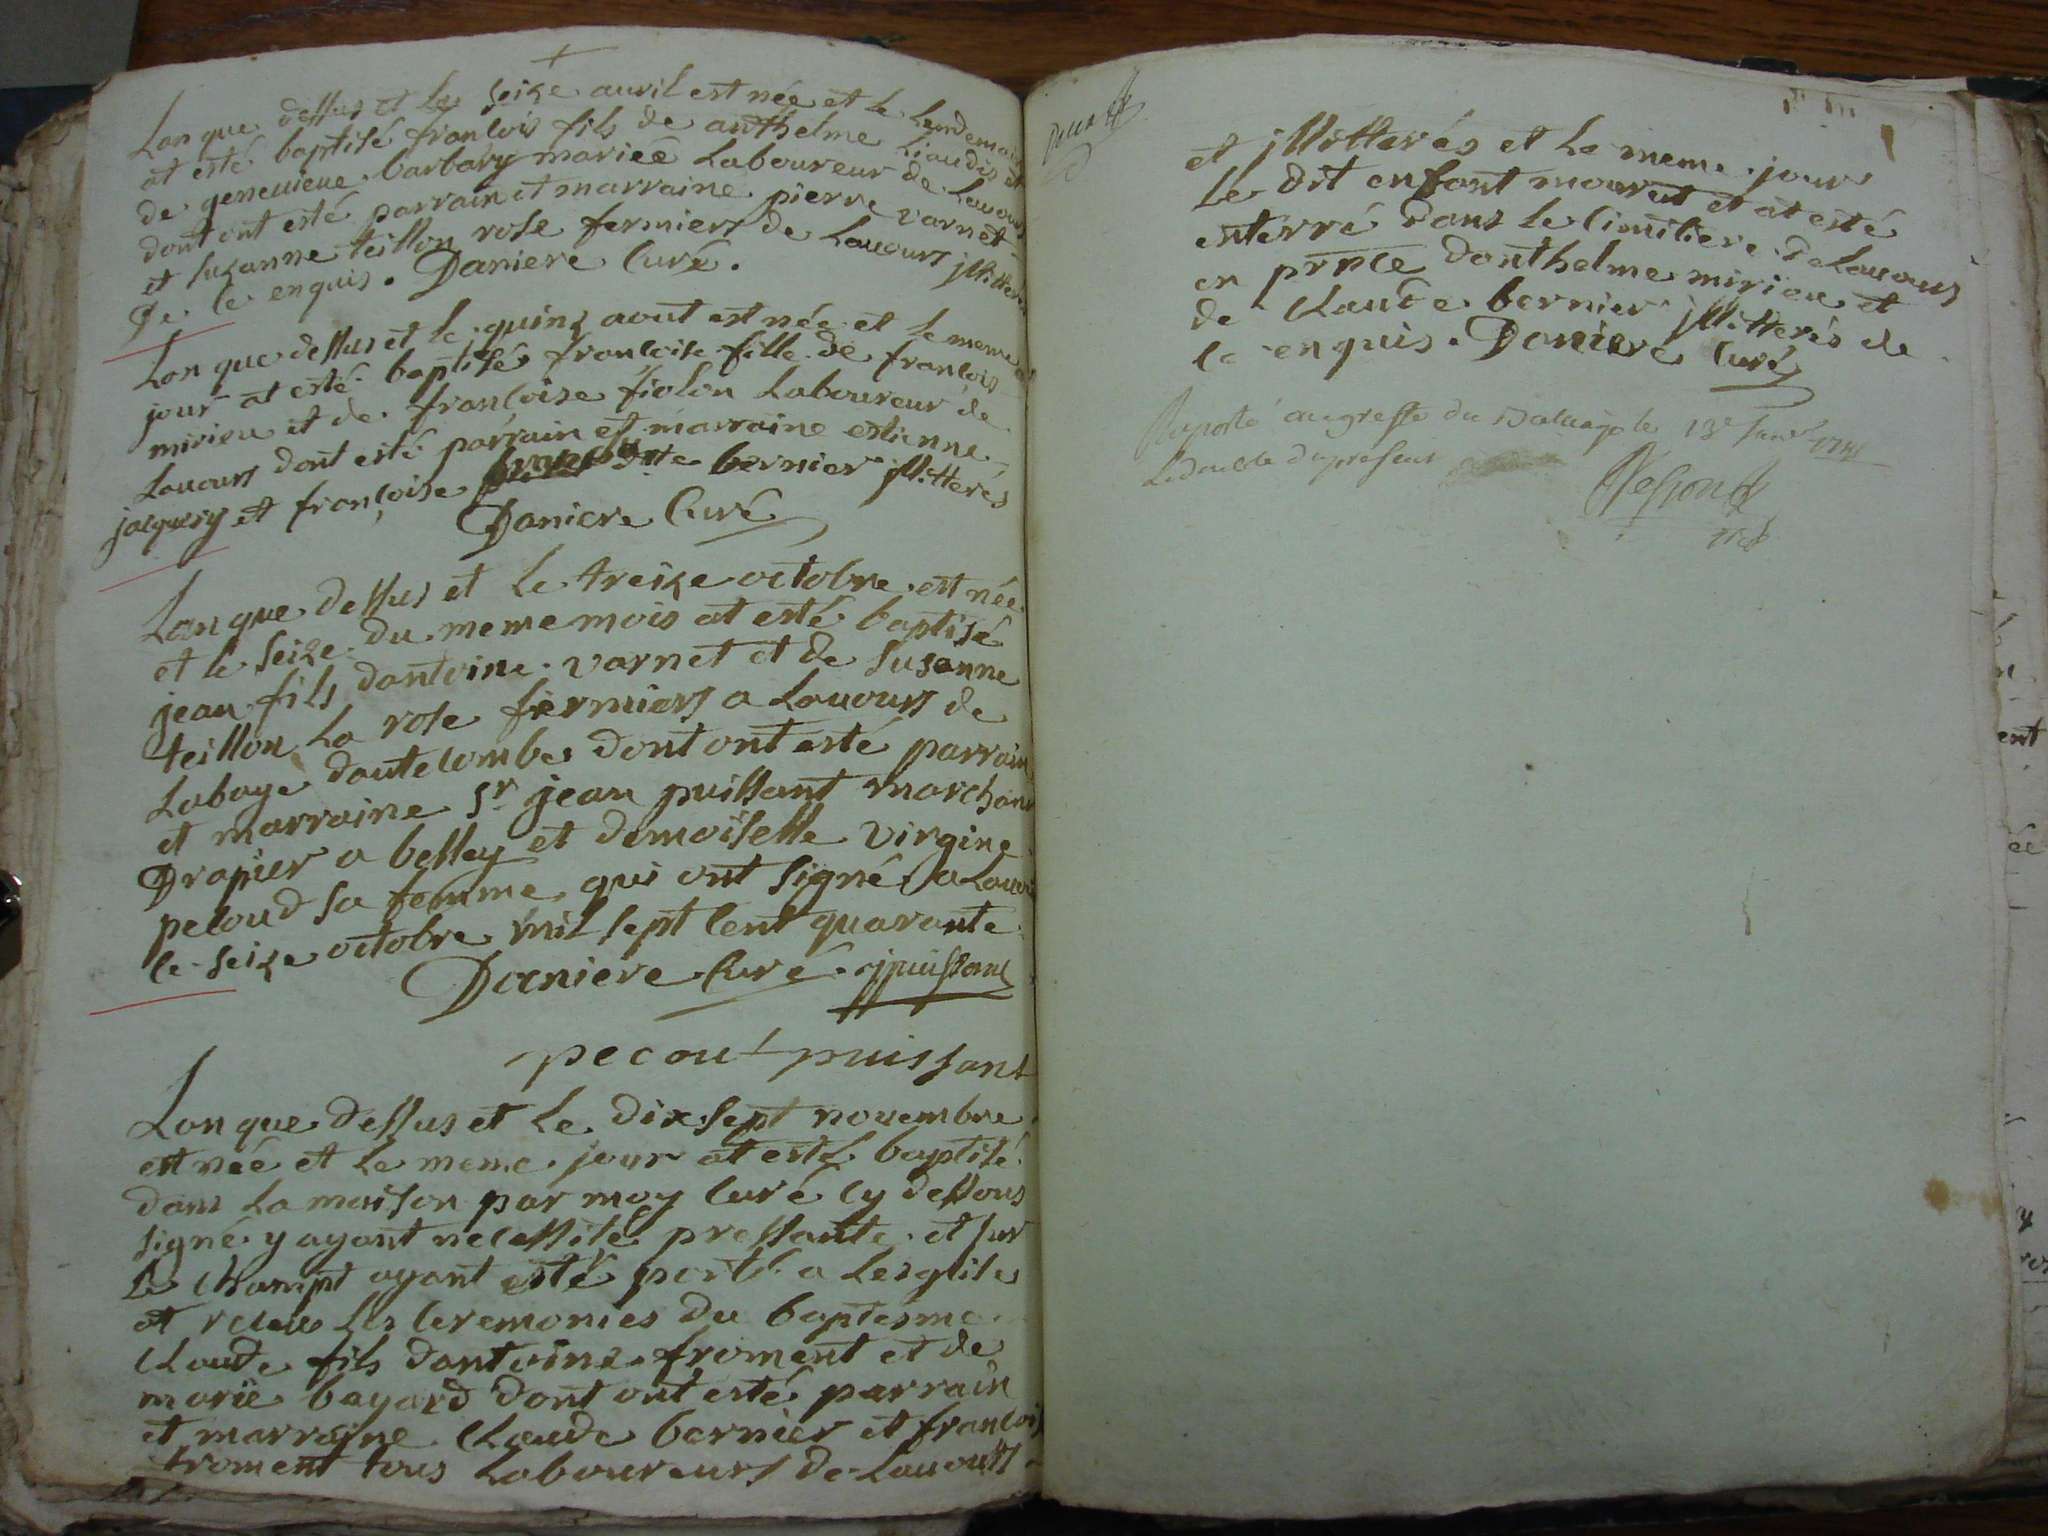 Lan que dessus et le seize auril est née et le lendemain
at esté baptisé francois fils de anthelme liaudin et
de geneuieue barbary marieé Laboureur de Lauours
dont ont esté parrain et marraine pierre varnet
et suzanne teillon rose fermiers de Lauours jllitterés
De ce enquis. Daniere Curé.
Lan que dessus et le quinz aout est née et le meme
jour at esté baptisé francoise fille de francois
mirieu et de francoise fiolon Laboureur de
Lauours dont esté parrain et marraine estienne
jacquery et françoise bernier jllitterés
Daniere Curé
Lan que dessus et le treize octobre est née
et le seize du meme mois at esté baptisé
jean fils dantoine varnet et de susanne
teillon La rose fermiers a Lauours de
Labaye dautecombe dont ont esté parrain
et marraine Sr jean puissant marchand
Drapier a belley et demoiselle virgine
pecoud sa femme qui ont signé a Lauours
ce seize octobre mil sept cent quarante
Daniere Curé. jpuissant
pecout puissant
Lan que dessus et le dix sept nouembre
est née et le meme jour at esté baptisé
dans la maison par moy curé cy dessous
signé y ayant necessité pressante et sur
le champt ayant esté porté a lesglise
et receu les ceremonies du baptesme
Claude fils dantoine froment et de
marie bayard dont ont esté parrain
et marraine Claude bernier et francoise
froment tous Laboureurs de Lauours
et jllitterés et le meme jour
le dit enfant mourut et at esté
enterré dans le cimitiere de Lauours
en prnce danthelme mirieu et
de Claude bernier jllitterés de
ce enquis. Daniere Curé
Raporté au greffe du Bailliage le 13e janvr 1741
Le double du présent